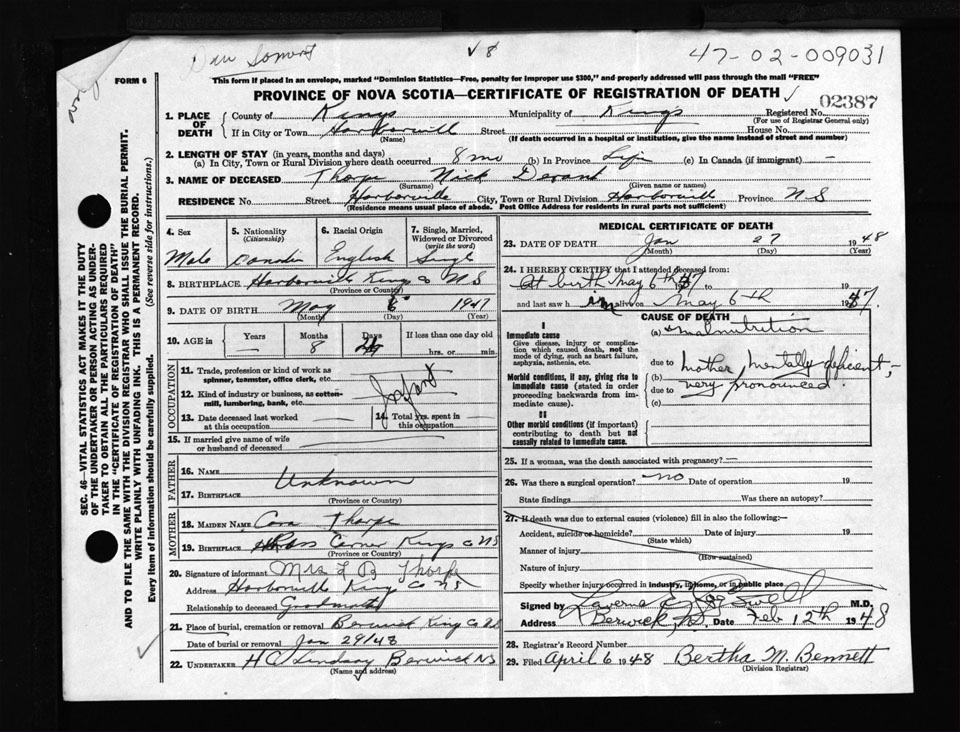 47-02-009031
FORM 6
This form if placed in an envelope, marked "Dominion Statistics—Free, penalty for improper use $300," and properly addressed will pass through the mail "FREE"
PROVINCE OF NOVA SCOTIA—CERTIFICATE OF REGISTRATION OF DEATH
02387
SEC. 46—VITAL STATISTICS ACT MAKES IT THE DUTY
OF THE UNDERTAKER OR PERSON ACTING AS UNDER-
TAKER TO OBTAIN ALL THE PARTICULARS REQUIRED
IN THE "CERTIFICATE OF REGISTRATION OF DEATH"
AND TO FILE THE SAME WITH THE DIVISION REGISTRAR WHO SHALL ISSUE THE BURIAL PERMIT.
WRITE PLAINLY WITH UNFADING INK. THIS IS A PERMANENT RECORD.
Every item of information should be carefully supplied. (See reverse side for instructions.)
1. PLACE OF DEATH County of Kings Municipality of Kings Registered No.
(For use of Registrar General only)
If in City or Town Harborville Street House No.
(Name) (If death occurred in a hospital or institution, give the name instead of street and number)
2. LENGTH OF STAY (in years, months and days)
(a) In City, Town or Rural Division where death occurred 8 mo (b) In Province Life (c) In Canada (if immigrant) —
3. NAME OF DECEASED Thorpe Nick
(Surname) (Given name or names)
RESIDENCE No. Street Harborville City, Town or Rural Division Harborville Province N S
(Residence means usual place of abode. Post Office Address for residents in rural parts not sufficient)
4. Sex 5. Nationality (Citizenship) 6. Racial Origin 7. Single, Married, Widowed or Divorced (write the word)
Male Canadian English Single
8. BIRTHPLACE Harborville Kings Co N S
(Province or Country)
9. DATE OF BIRTH May 6 1947
(Month) (Day) (Year)
10. AGE in Years Months Days If less than one day old
— 8 hrs. or min.
OCCUPATION
11. Trade, profession or kind of work as
spinner, teamster, office clerk, etc.
12. Kind of industry or business, as cotton-
mill, lumbering, bank, etc.
Infant
13. Date deceased last worked
at this occupation
14. Total yrs. spent in
this occupation
15. If married give name of wife
or husband of deceased
FATHER
16. NAME
Unknown
17. BIRTHPLACE
(Province or Country)
MOTHER
18. MAIDEN NAME Cora Thorpe
19. BIRTHPLACE Ross Corner Kings Co N S
(Province or Country)
20. Signature of informant Mrs L B Thorpe
Address Harborville Kings Co NS
Relationship to deceased Grandmother
21. Place of burial, cremation or removal Berwick Kings Co N.S.
Date of burial or removal Jan 29/48
22. UNDERTAKER H C Lindsay Berwick NS
(Name and address)
MEDICAL CERTIFICATE OF DEATH
23. DATE OF DEATH Jan 27 1948
(Month) (Day) (Year)
24. I HEREBY CERTIFY that I attended deceased from:
At birth May 6th 47 to 19
and last saw h im alive on May 6th 1947.
CAUSE OF DEATH
I
Immediate cause
Give disease, injury or complica-
tion which caused death, not the
mode of dying, such as heart failure,
asphyxia, asthenia, etc.
(a) malnutrition
due to
Morbid conditions, if any, giving rise to
immediate cause (stated in order
proceeding backwards from im-
mediate cause).
mother, mentally deficient,-
(b)
due to very pronounced.
(c)
II
Other morbid conditions (if important)
contributing to death but not
causally related to immediate cause.
25. If a woman, was the death associated with pregnancy? —
26. Was there a surgical operation? no Date of operation 19
State findings Was there an autopsy?
27. If death was due to external causes (violence) fill in also the following:—
Accident, suicide or homicide? Date of injury 19
(State which)
Manner of injury
(How sustained)
Nature of injury
Specify whether injury occurred in industry, in home, or in public place
Signed by Laverne E M.D.
Address Berwick, N.S. Date Feb 12th 1948
28. Registrar's Record Number
29. Filed April 6 1948 Bertha M. Bennett
(Division Registrar)